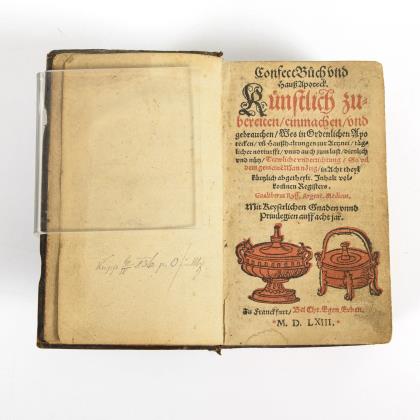 Confect Bůch vnd
Hauß Apoteck.
Künstlich zu-
bereiten / einmachen / vnd
gebrauchen / Wes in Ordenlichen Apo
tecken / vñ Haußhaltungen zur Artznei / täg-
licher notturfft / vnnd auch zum lust / dienlich
vnd nütz / Trewliche vnderrichtung /
dem gemeinē Man nötig / in Acht theyl
kürtzlich abgetheylt. Inhalt vol-
komnen Registers.
Gualtherus Ryff, Argent. Medicus.
Mit Keyserlichen Gnaden vnnd
Priuilegien auff acht jar.
Zu Franckfurt / Bei Chr. Egen. Erben.
M. D. LXIII.